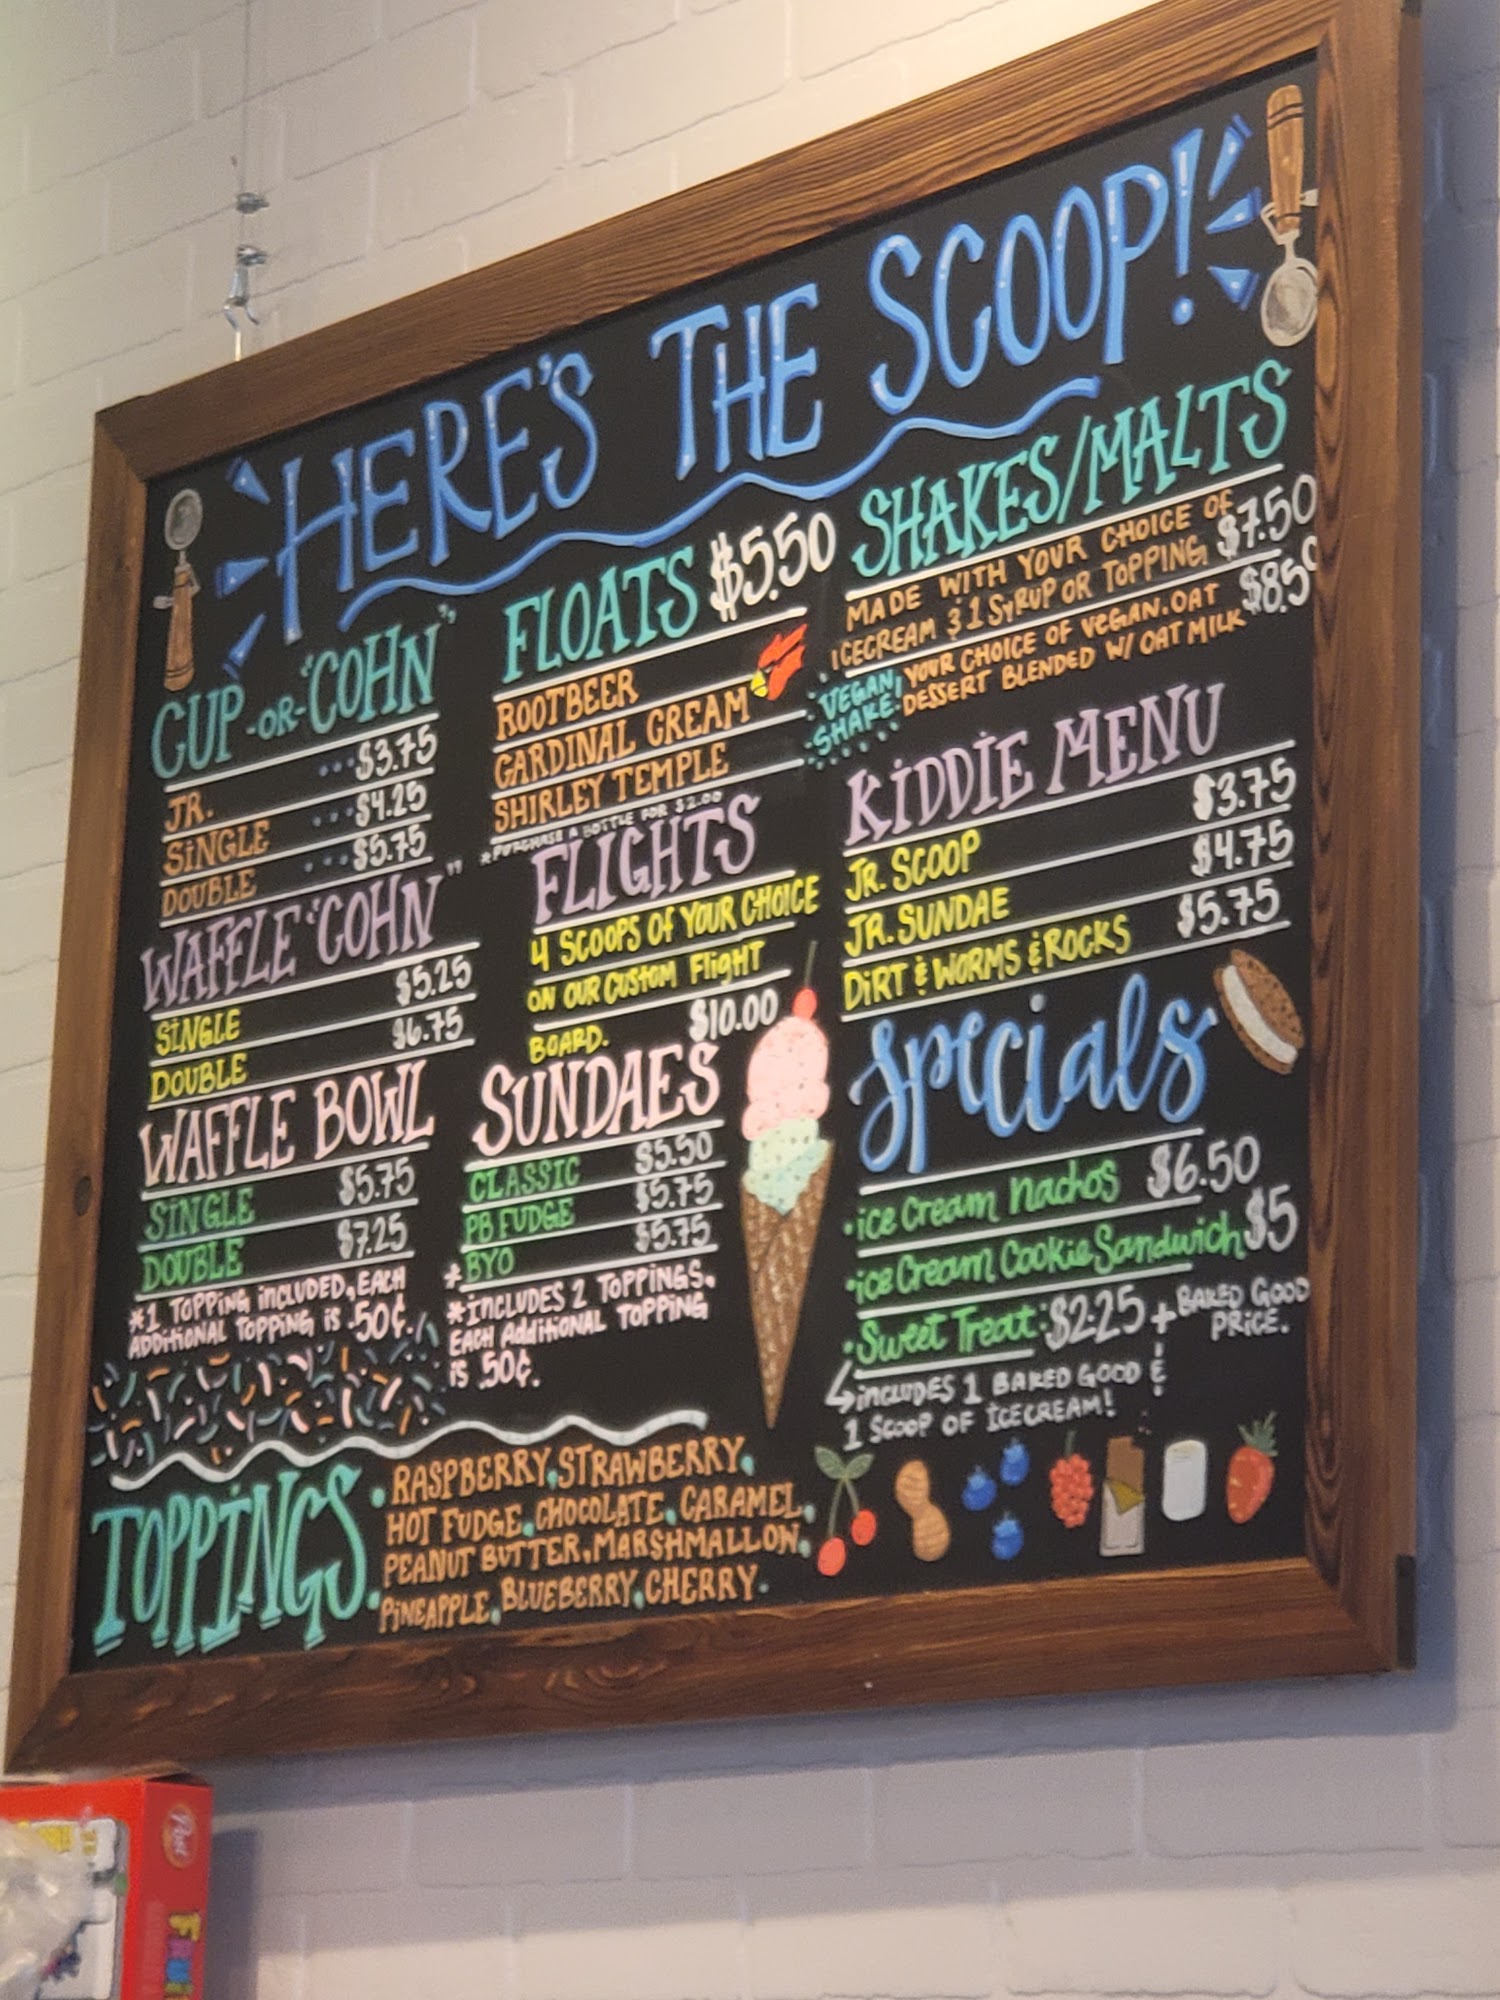 HERE'S THE SCOOP!
CUP -OR- "COHN"
JR. ...$3.75
SINGLE ...$4.25
DOUBLE ...$5.75
WAFFLE "COHN"
SINGLE $5.25
DOUBLE $6.75
WAFFLE BOWL
SINGLE $5.75
DOUBLE $7.25
*1 TOPPING INCLUDED, EACH
ADDITIONAL TOPPING IS .50¢.
FLOATS $5.50
ROOTBEER
CARDINAL CREAM
SHIRLEY TEMPLE
*PURCHASE A BOTTLE FOR $2.00
FLIGHTS
4 SCOOPS OF YOUR CHOICE
ON OUR CUSTOM FLIGHT
BOARD. $10.00
SUNDAES
CLASSIC $5.50
PB FUDGE $5.75
*BYO $5.75
*INCLUDES 2 TOPPINGS.
EACH ADDITIONAL TOPPING
IS .50¢.
SHAKES/MALTS
MADE WITH YOUR CHOICE OF $7.50
ICECREAM & 1 SYRUP OR TOPPING
VEGAN SHAKE: YOUR CHOICE OF VEGAN.OAT $8.50
DESSERT BLENDED W/ OAT MILK
KIDDIE MENU
JR. SCOOP $3.75
JR. SUNDAE $4.75
DIRT & WORMS & ROCKS $5.75
Specials
•ice Cream Nachos $6.50
•ice Cream Cookie Sandwich $5
•Sweet Treat: $2.25 + BAKED GOOD
PRICE.
INCLUDES 1 BAKED GOOD &
1 SCOOP OF ICECREAM!
TOPPINGS:
RASPBERRY, STRAWBERRY,
HOT FUDGE, CHOCOLATE, CARAMEL,
PEANUT BUTTER, MARSHMALLON,
PINEAPPLE, BLUEBERRY, CHERRY.
Post